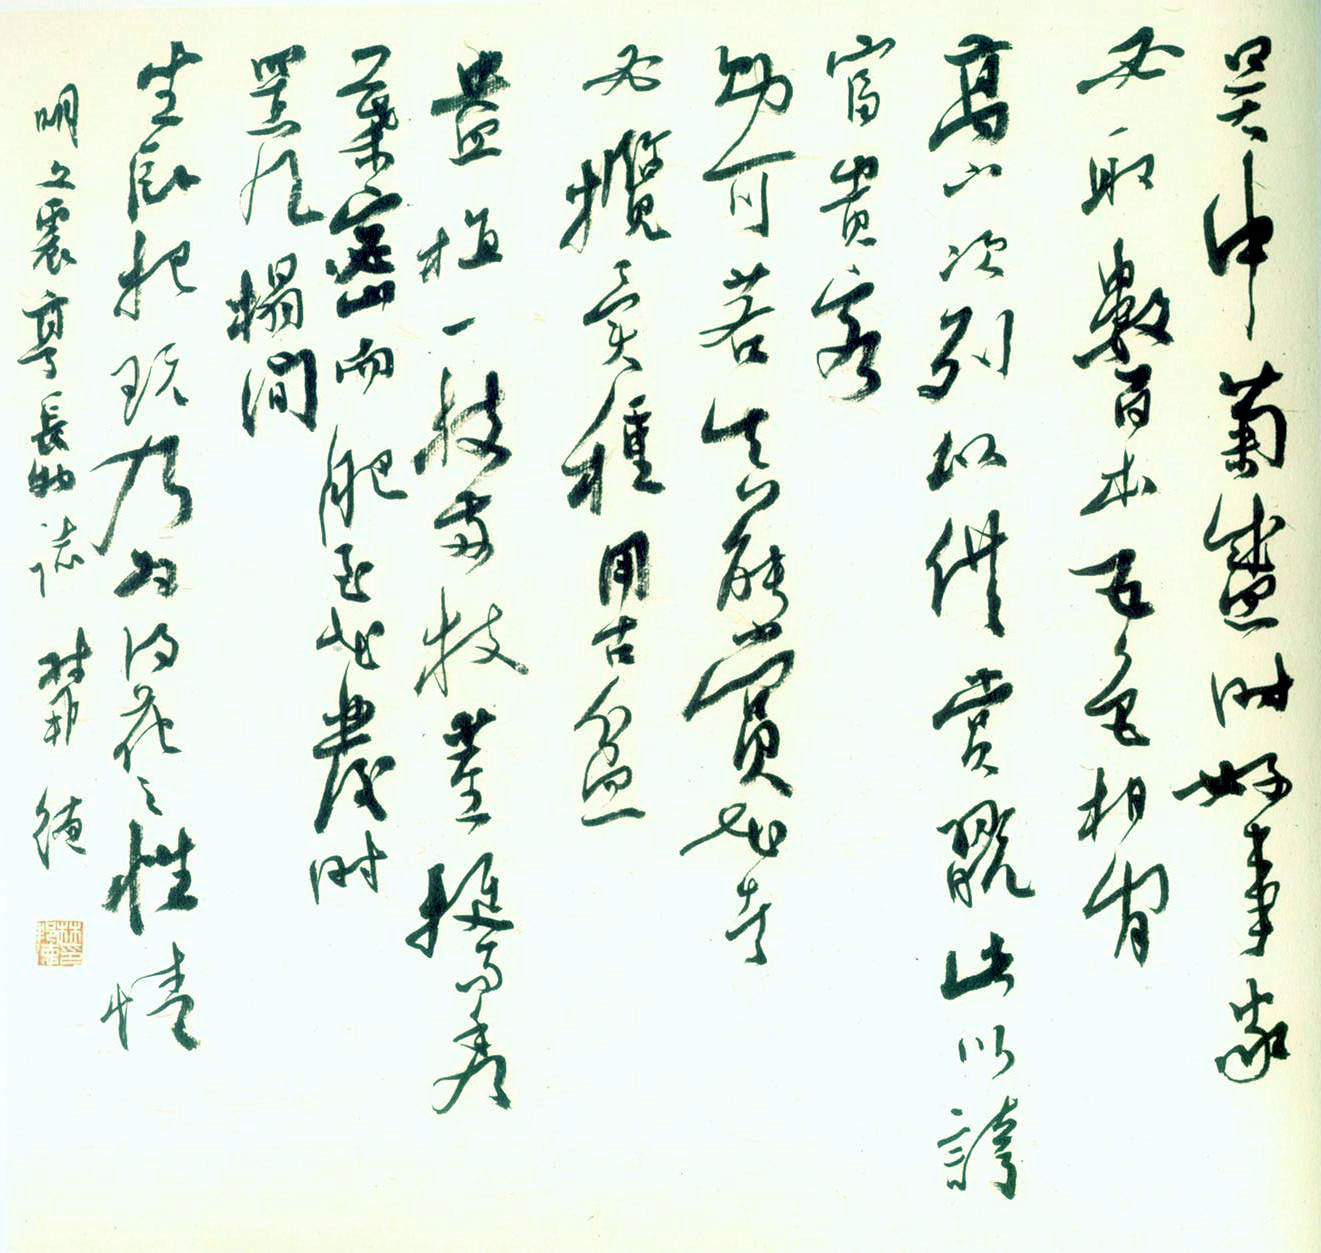 吳中菊盛時好事家
必取數百本五色相間
高下次列以供賞翫此以誇
富貴容
則可若真能賞花者
必攬異種用古盆
盎植一枝兩枝莖挺而秀
葉密而肥至花發時
置几榻間
坐臥把玩乃為得花之性情
明文震亨長物志 林邦德